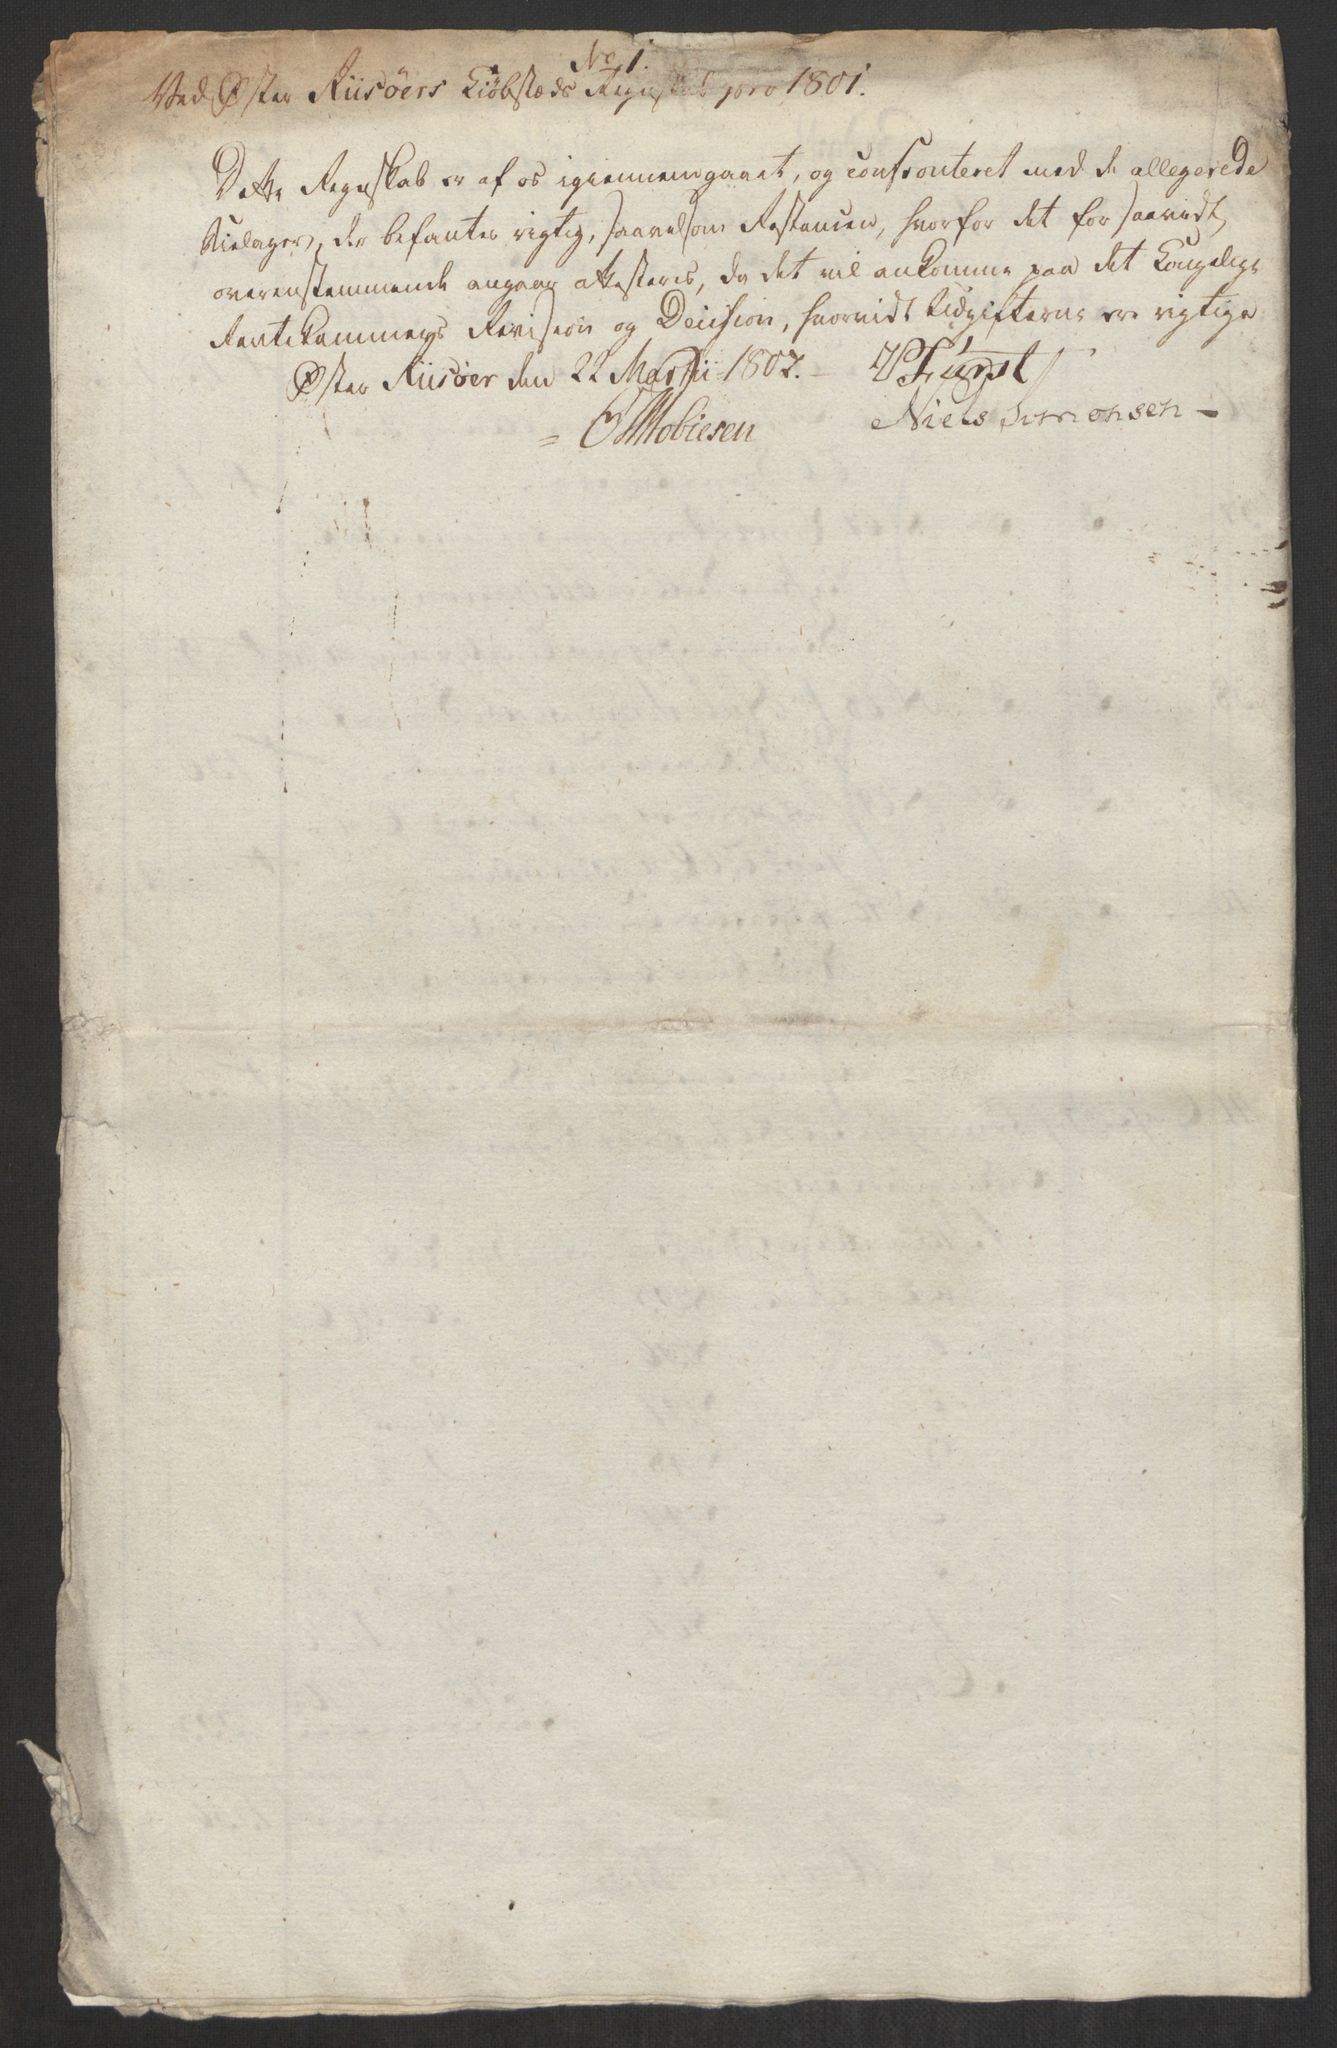 No 1.
Ved Øster Riisöers Kiöbstæds Regnskab pro 1801.
Dette Regnskab er af os igiennemgaaet, og confronteret med de allegerede
Bielager, der befantes rigtig, saavelsom Restancen, hvorfor det for saavidt
overenstemmende angaar attesteris, da det vil ankomme paa det Kongelige
Rentekammers Revision og Decision, hvorvidt Udgifterne ere rigtige
Øster Riisöer den 22 Martii 1802. Fürst
= Tobiesen Niels Simonsen